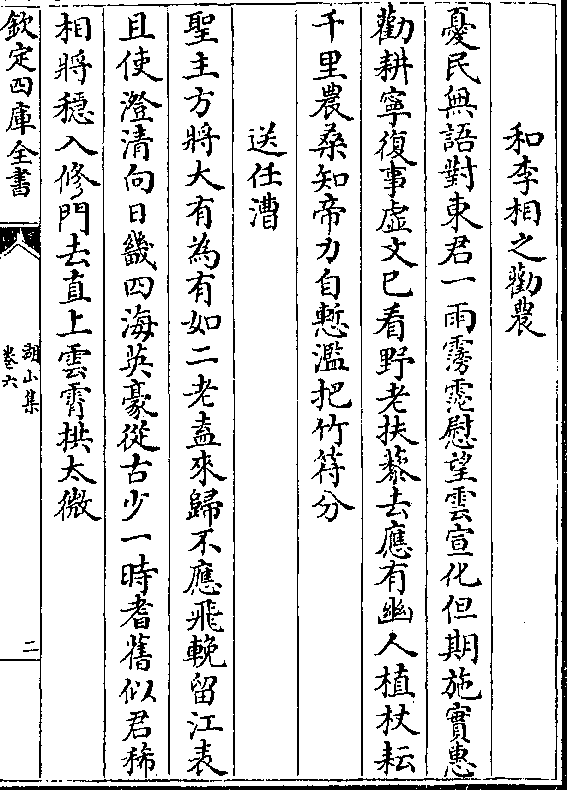 和李相之勸農
憂民無語對東君一雨霶霑慰望雲宣化但期施實惠
勸耕寧復事虛文已看野老扶藜去應有幽人植杖耘
千里農桑知帝力自慙濫把竹符分
送任漕
聖主方將大有為有如二老盍來歸不應飛輓留江表
且使澄清向日畿四海英豪從古少一時耆舊似君稀
相將穩入修門去直上雲霄拱太微
欽定四庫全書
湖山集
卷六
二